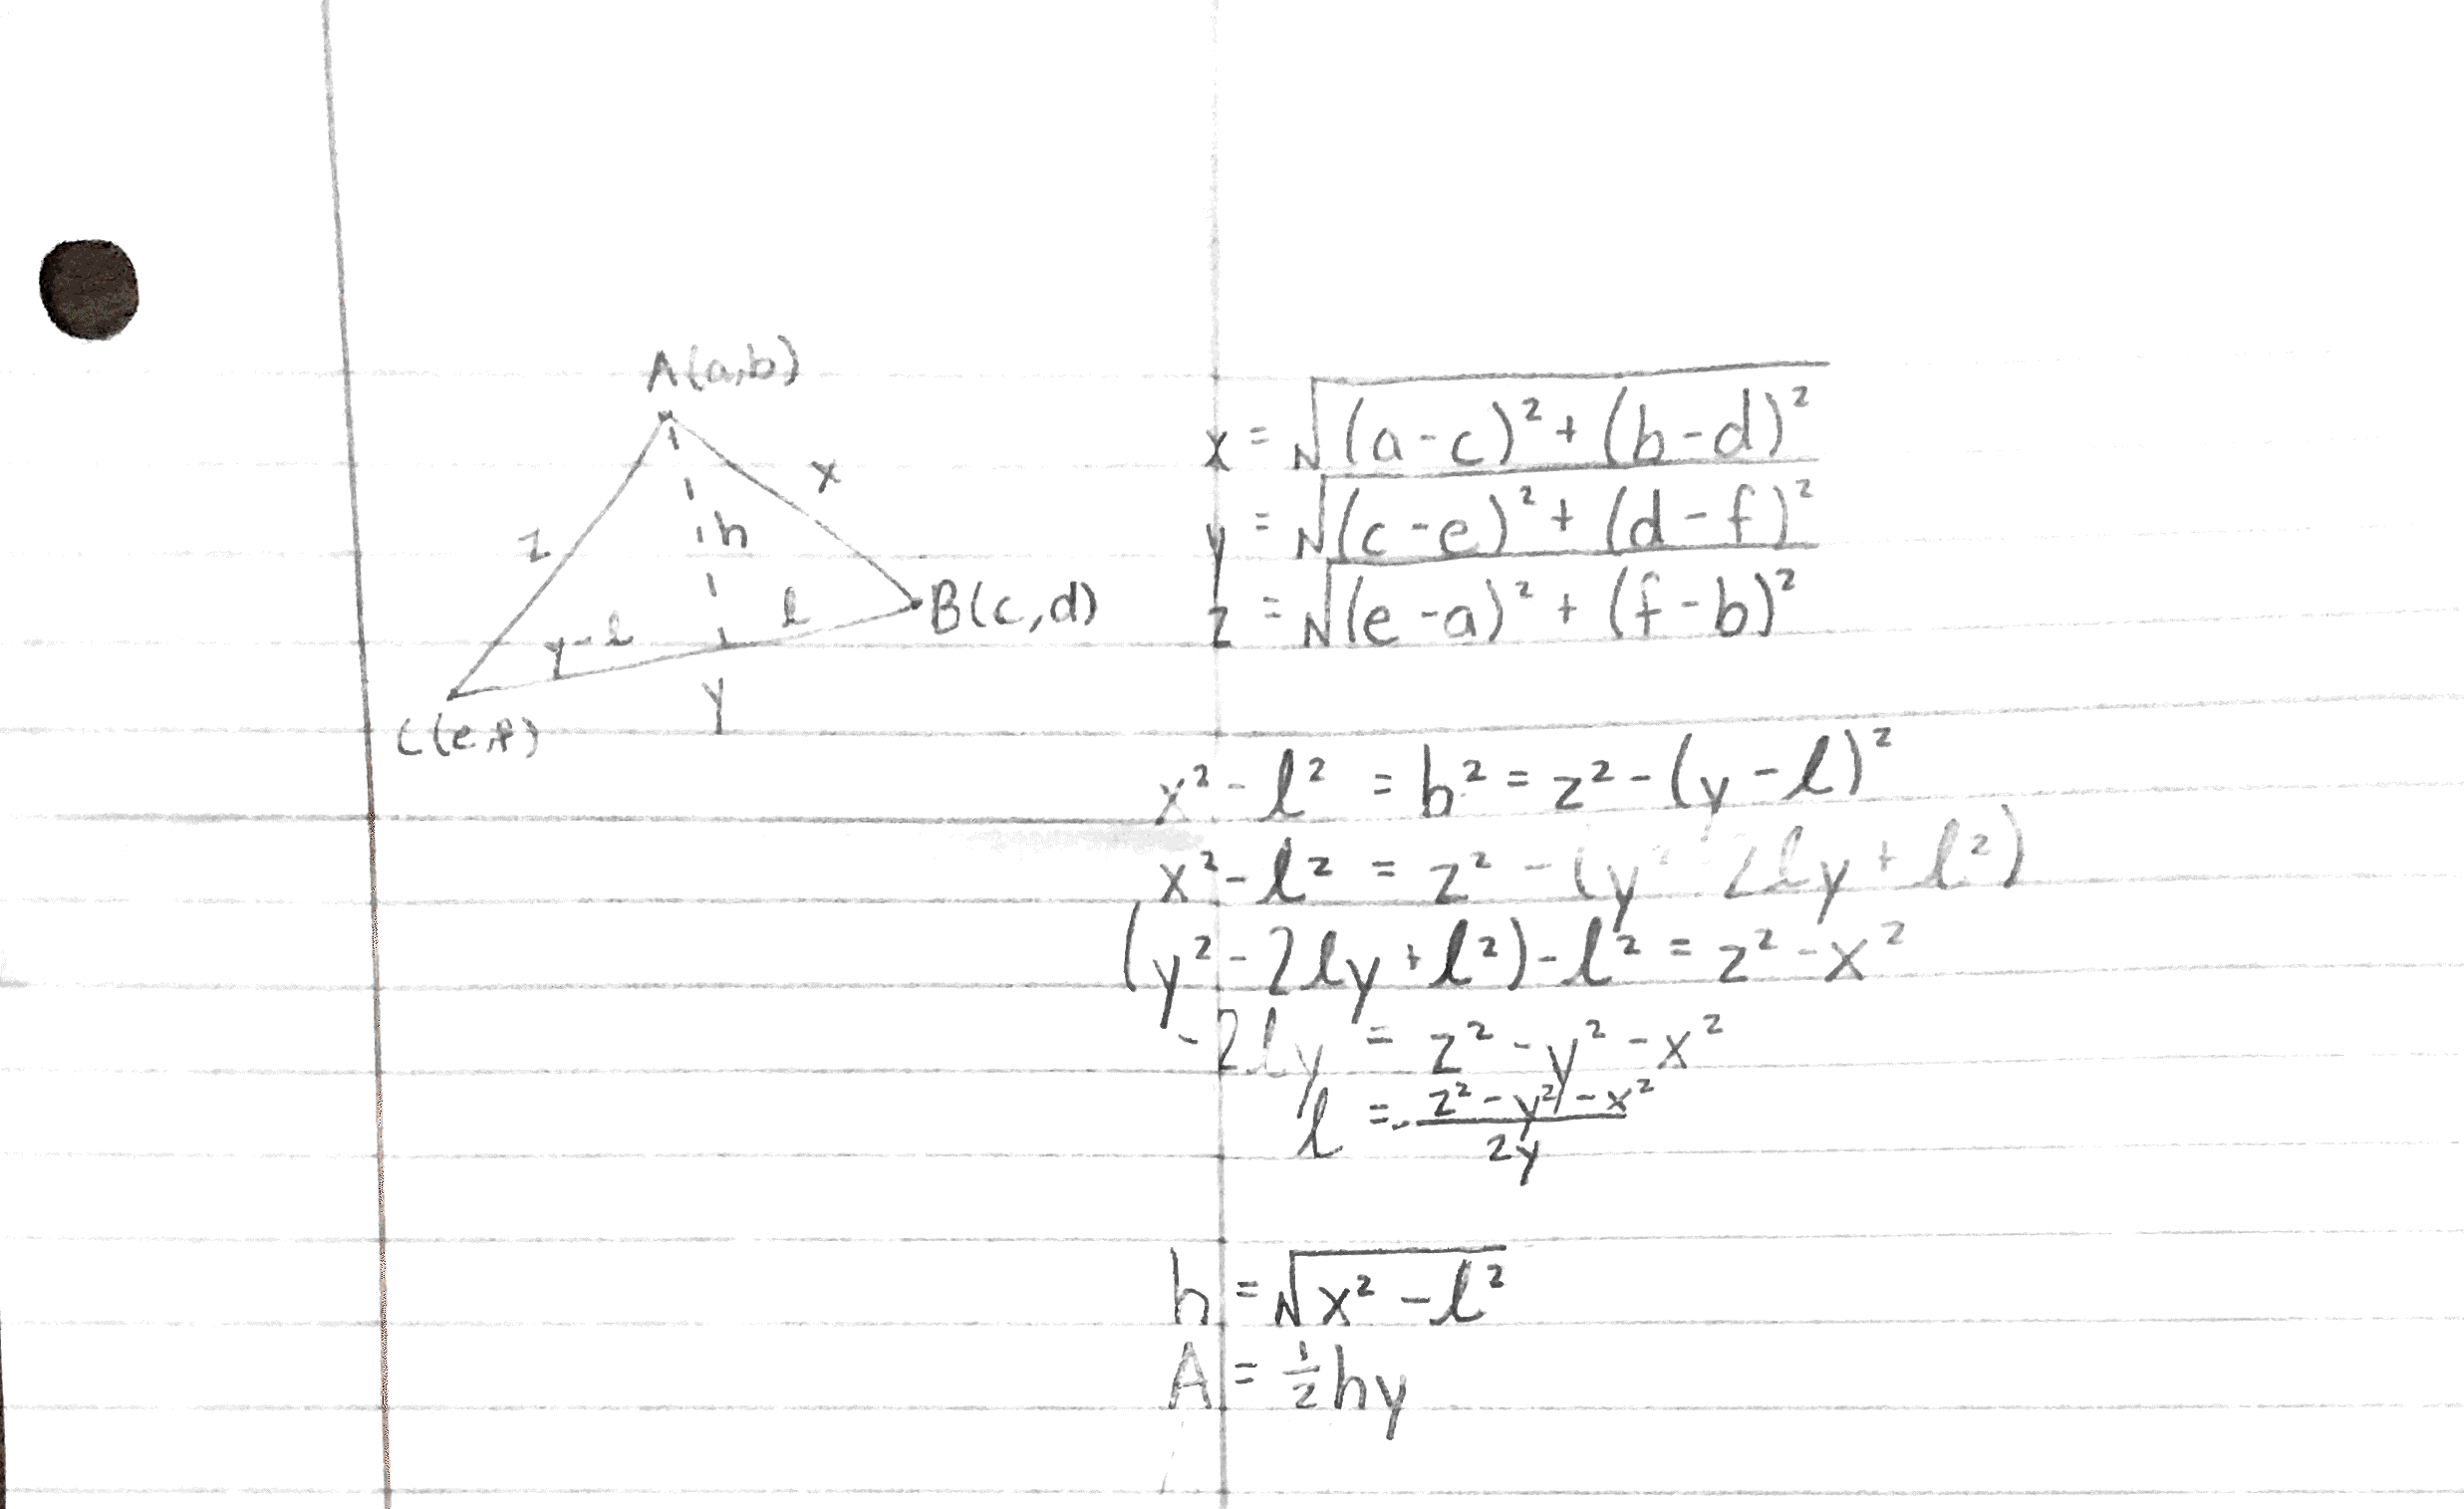 A(a,b)
x
z
h
l
B(c,d)
y-l
y
C(e,f)
x = √(a-c)² + (b-d)²
y = √(c-e)² + (d-f)²
z = √(e-a)² + (f-b)²
x² - l² = h² = z² - (y-l)²
x² - l² = z² - (y² - 2ly + l²)
(y² - 2ly + l²) - l² = z² - x²
-2ly = z² - y² - x²
l = - z² - y² - x² / 2y
h = √x² - l²
A = ½hy